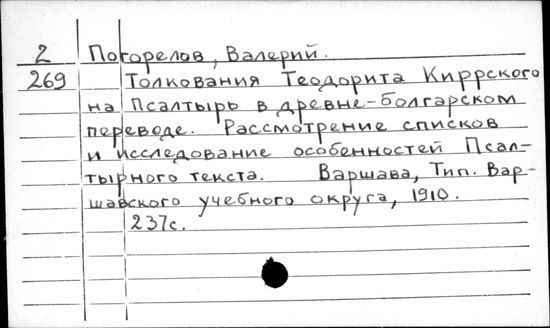 2 Погорелов, Валерий.
269 Толкования Теодорита Киррского
на Псалтырь в древне-болгарском
переводе. Рассмотрение списков
и исследование особенностей Псал-
тырного текста. Варшава, Тип. Вар-
шавского учебного округа, 1910.
237с.